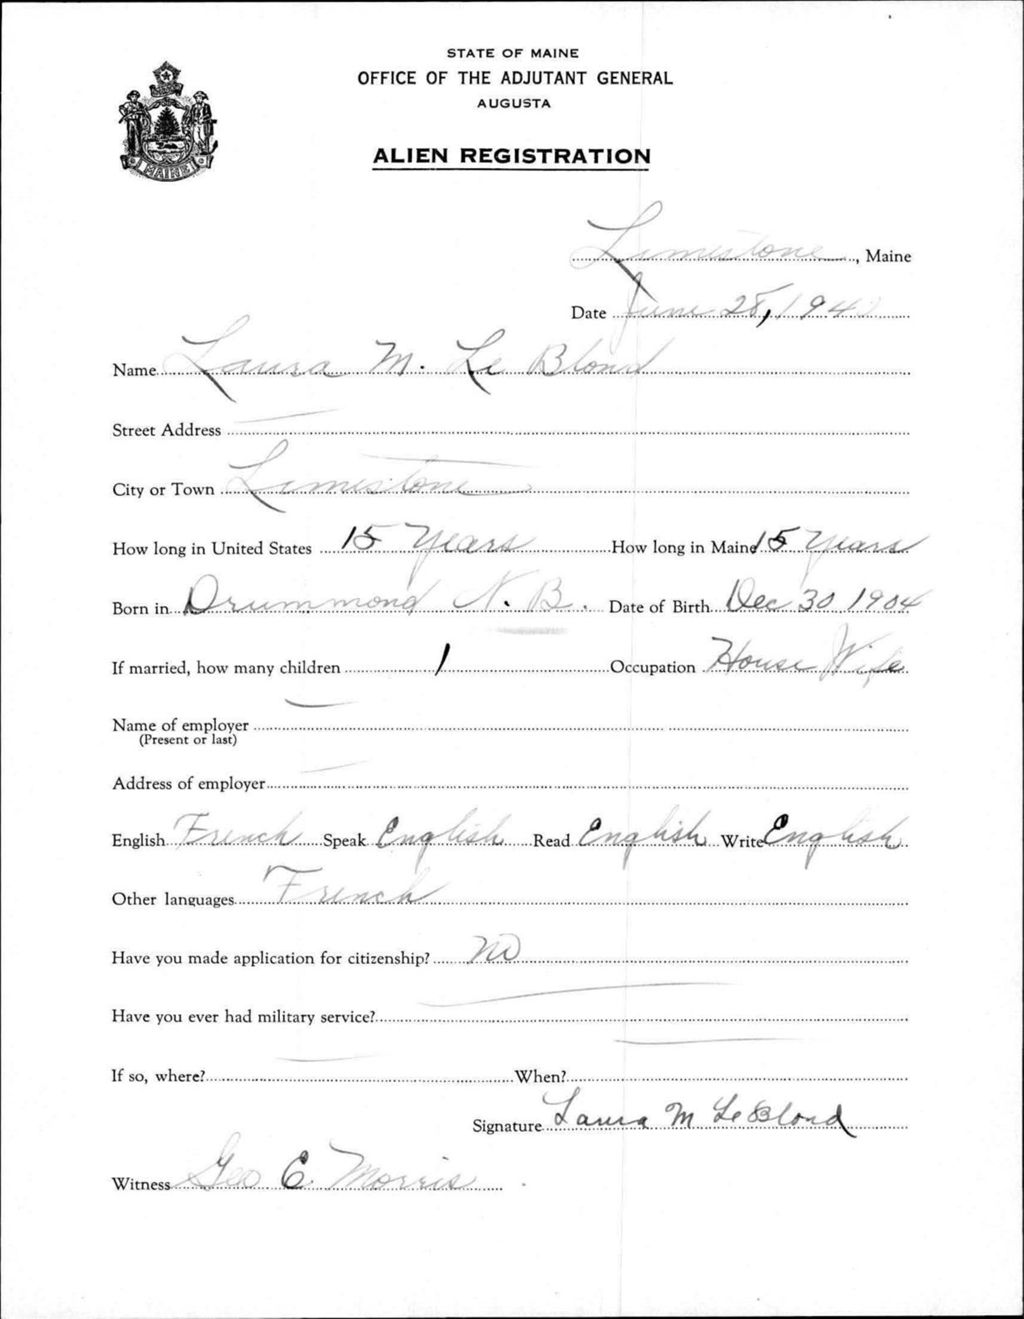 STATE OF MAINE
OFFICE OF THE ADJUTANT GENERAL
AUGUSTA
ALIEN REGISTRATION
MAINE
Limestone, Maine
Date June 28, 1940
Name Laura M. Le Blond
Street Address —
City or Town Limestone
How long in United States 15 Years How long in Maine 15 Years
Born in Drummond N. B. Date of Birth Dec 30 1904
If married, how many children 1 Occupation House Wife
Name of employer —
(Present or last)
Address of employer —
English French Speak English Read English Write English
Other languages French
Have you made application for citizenship? No
Have you ever had military service? —
If so, where? — When? —
Signature Laura M LeBlond
Witness Geo E. Morris